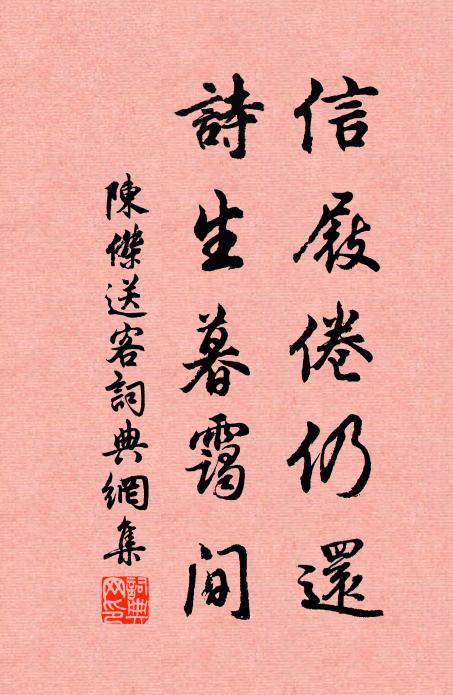 信屐倦仍還
詩生暮靄間
陳傑送客詞典網集
詞典網印